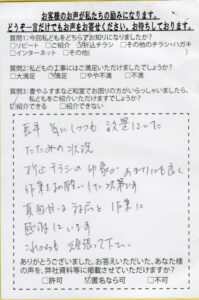 お客様のお声が私たちの励みになります。
どうぞ一言だけでもお声をお寄せください。お待ちしております。
質問1:今回私どもをどちらでお知りになりましたか?
□リピート □ご紹介 ☑折込チラシ □その他のチラシ・ハガキ
□インターネット □その他( )
質問2:私どもの工事にはご満足いただけましたでしょうか?
□大満足 ☑満足 □やや不満 □不満
質問3:畳やふすまなど和室でお困りの方がいらっしゃいましたら、
私どもをご紹介いただけますでしょうか?
☑紹介できる □紹介できない
長年 気にしつつも 放置していた
たたみの状況
折込チラシの印象が あまりにも良く
作業をお願いした次第です
真面目な 対応と 作業に
感謝しています
これからも 頑張って下さい
ありがとうございました。お答えいただいた、あなた様
の声を、弊社資料等に掲載させていただけますか?
□許可 ☑匿名なら可 □不可